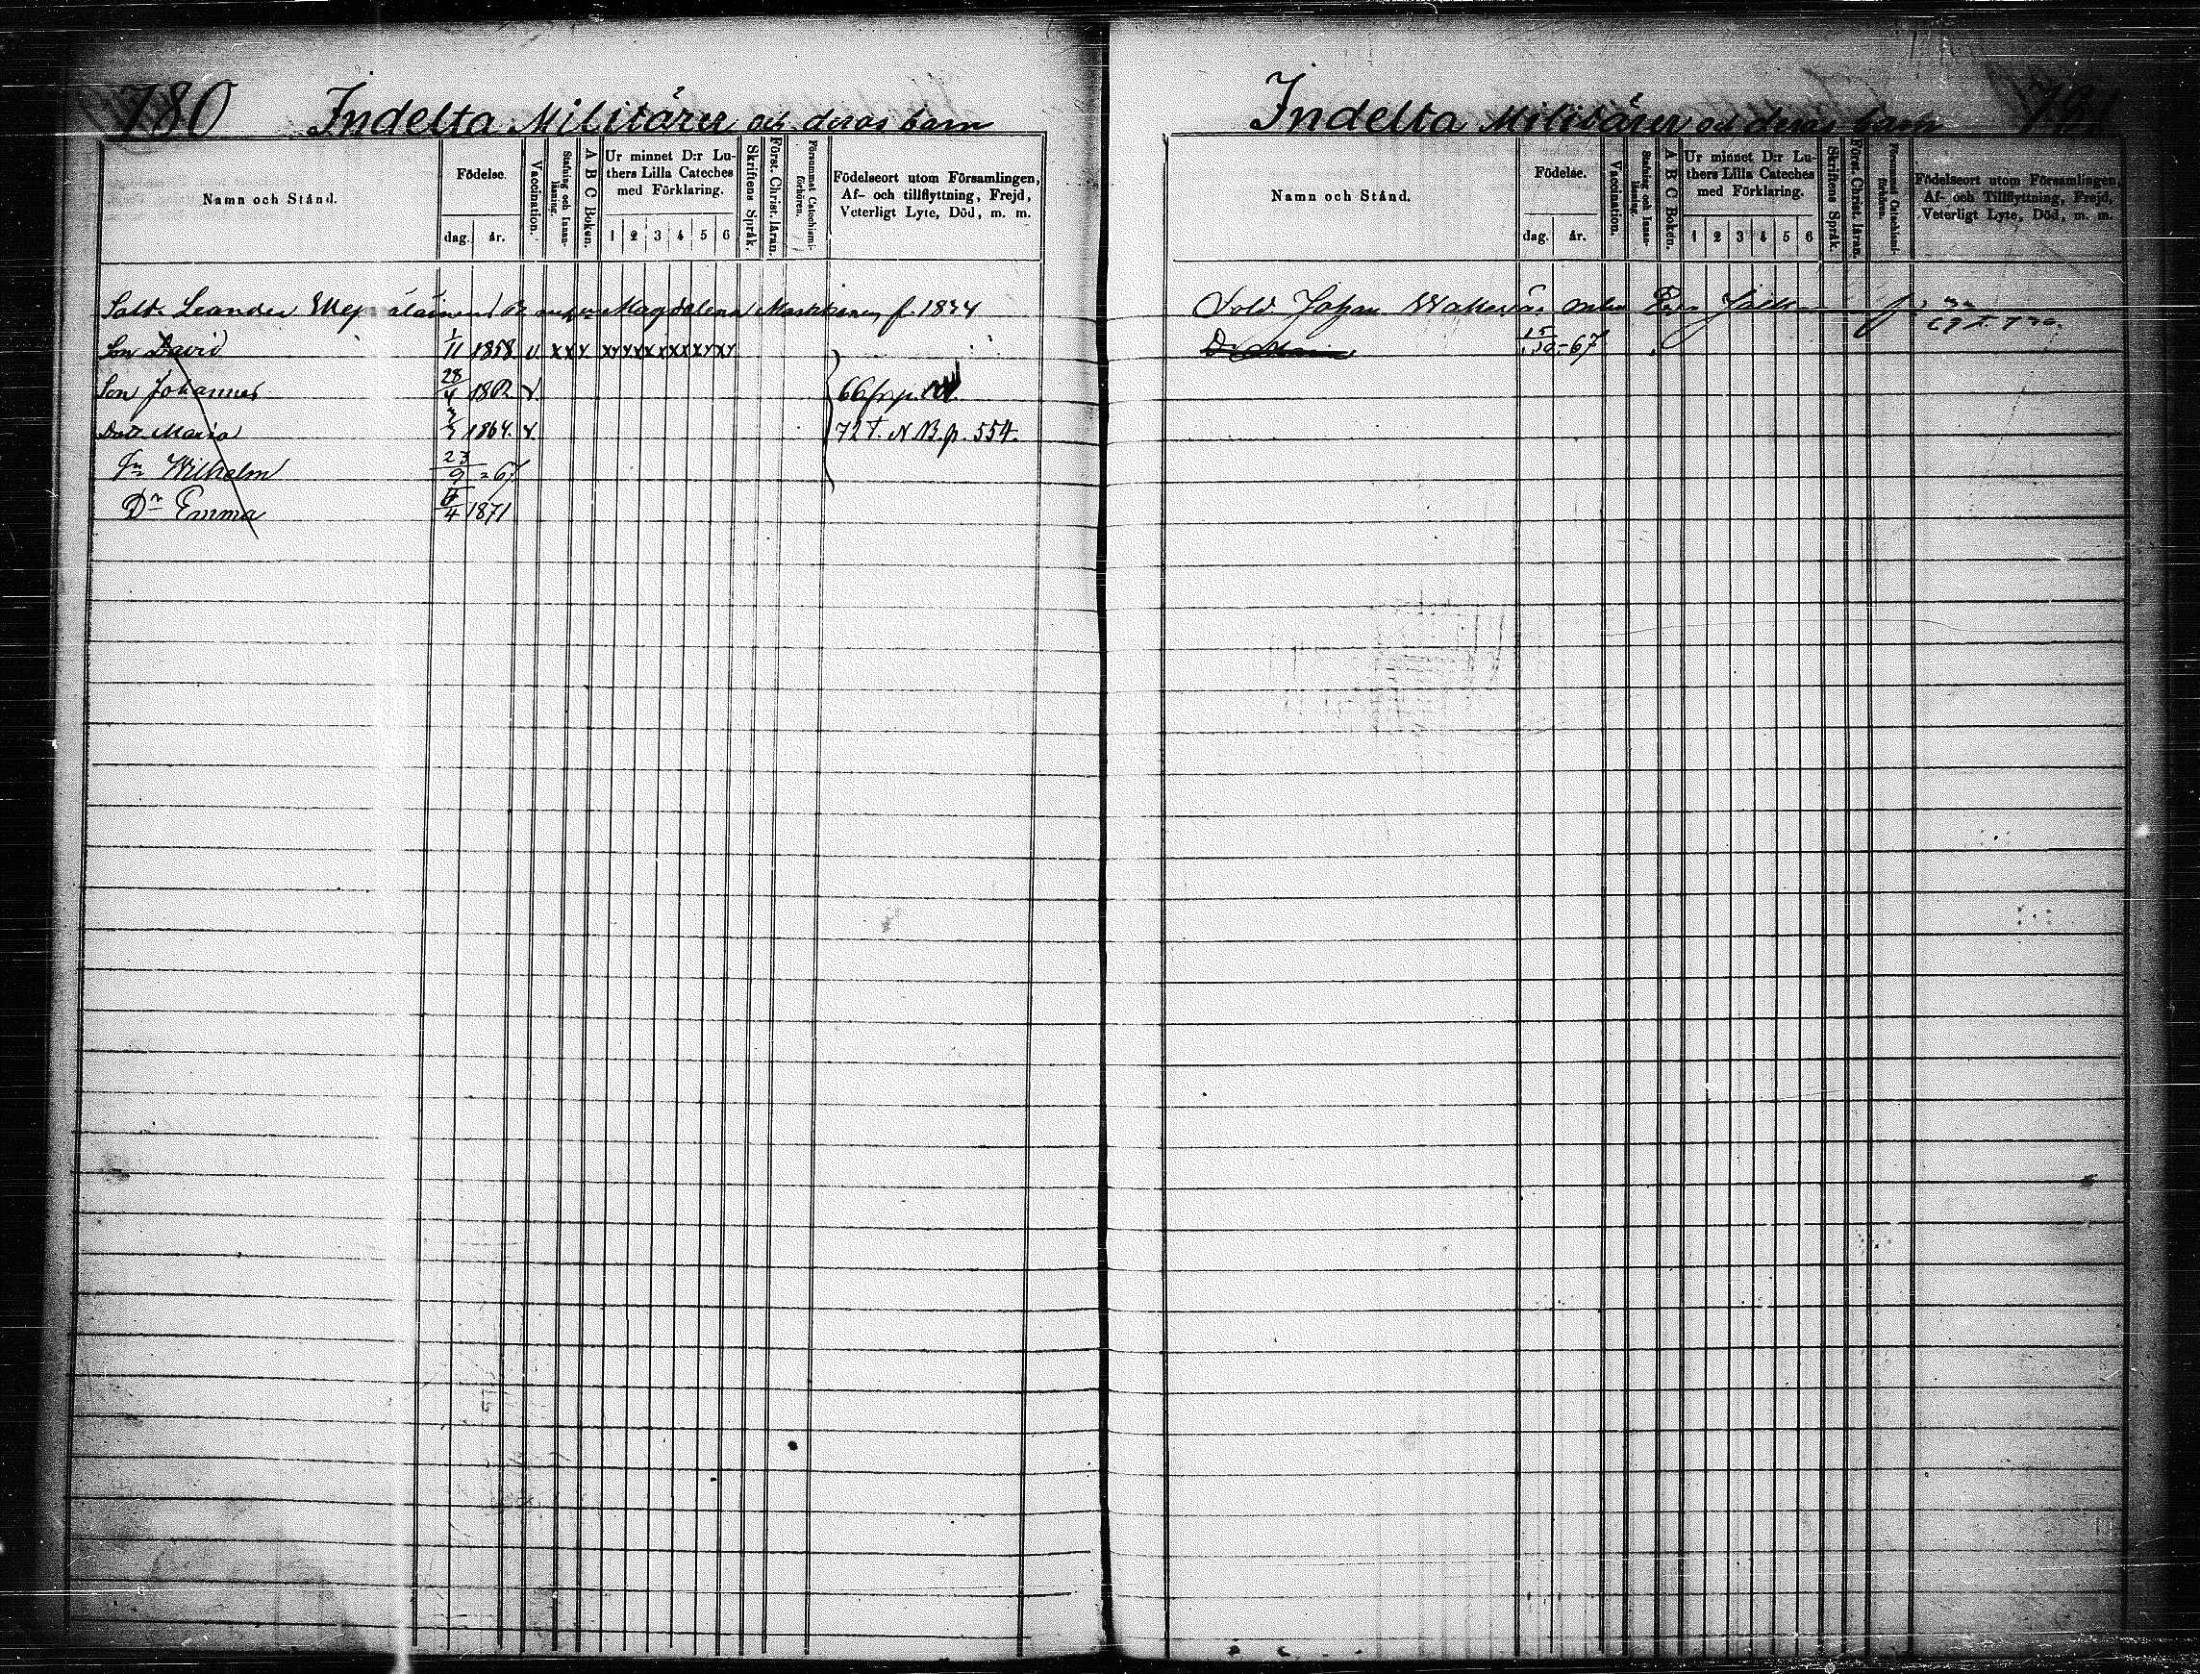 780 Indelta Militärer och deras barn
Namn och Stånd.
Födelse.
dag. år.
Vaccination.
Stafning och Innan-läsning.
A B C Boken.
Ur minnet D:r Lu-
thers Lilla Cateches
med Förklaring.
1 2 3 4 5 6
Skriftens Språk.
Förat. Christ. läran.
Försummat Catechismi-förhören.
Födelseort utom Församlingen,
Af- och tillflyttning, Frejd,
Veterligt Lyte, Död, m. m.
Sold. Leander Magdalena f. 1834
Son David 1/11 1858 v x x x
Son Johannes 28/4 1862 v. 66
Dotr Maria 1864. v. 72 f. N B. p. 554.
Sn Wilhelm 23/9 = 67
Dr Emma 1871
Indelta Militärer och deras barn 781
Namn och Stånd.
Födelse.
dag. år.
Vaccination.
Stafning och Innan-läsning.
A B C Boken.
Ur minnet D:r Lu-
thers Lilla Cateches
med Förklaring.
1 2 3 4 5 6
Skriftens Språk.
Förat. Christ. läran.
Försummat Catechismi-förhören.
Födelseort utom Församlingen,
Af- och Tillflyttning, Frejd,
Veterligt Lyte, Död, m. m.
Sold Johan
Dr 15/10 - 67